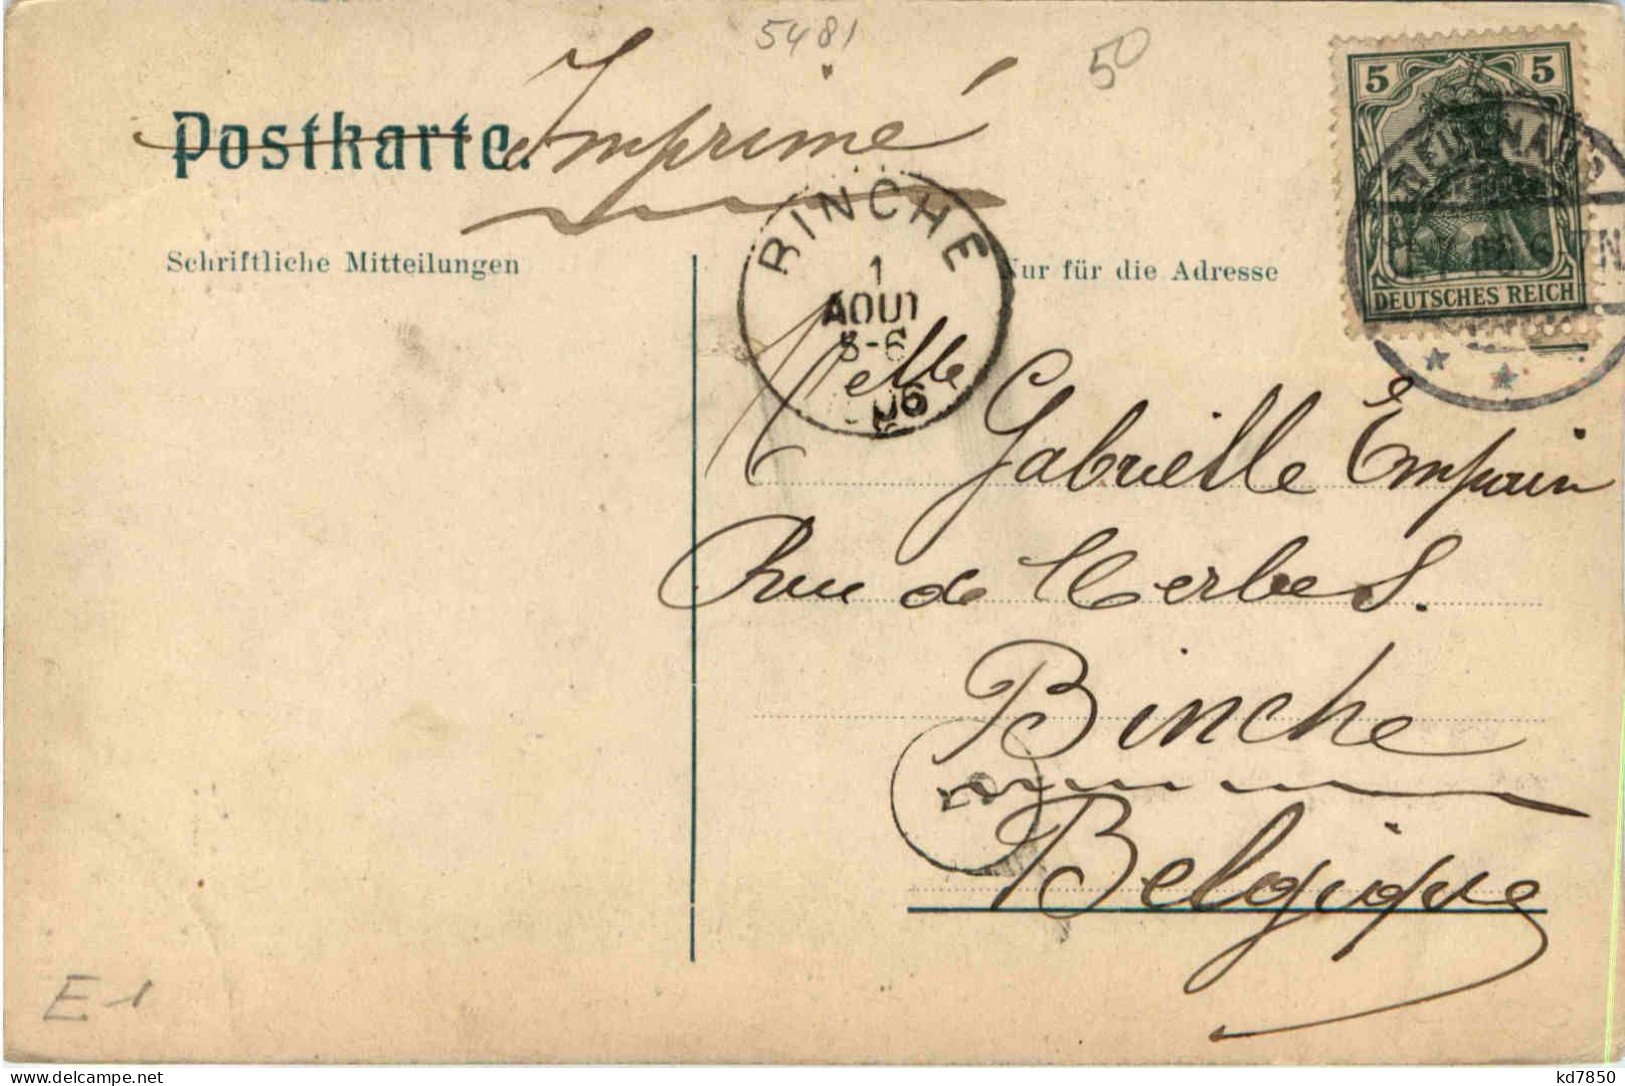 5481
50
Postkarte. Imprimé
5 5
DEUTSCHES REICH
BINCHE
1
AOUT
5-6
06
Schriftliche Mitteilungen
Nur für die Adresse
7N
Melle
Gabrielle Empain
Rue de Merbes.
Binche
Belgique
E 1
kd7850